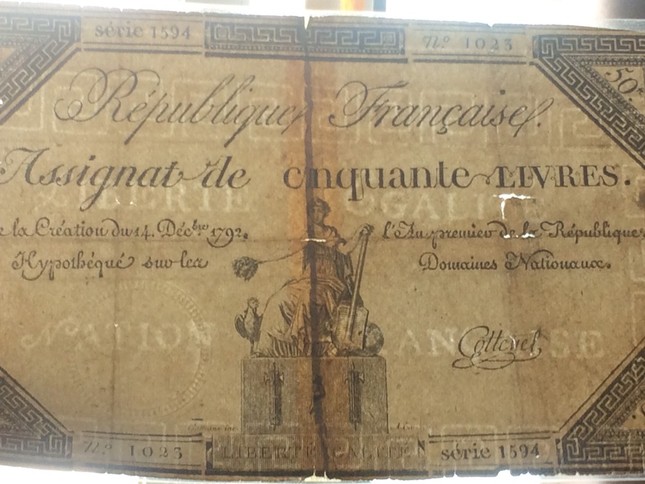 série 1594
Nº 1023
50
République Française.
Assignat de cinquante LIVRES.
de la Création du 14. Décbre 1792.
l'An premier de la République
Hypothéqué sur les
Domaines Nationaux.
LIBERTÉ EGALITÉ
NATION FRANÇAISE
Cottenet
Nº 1023
LIBERTÉ EGALITÉ
série 1594